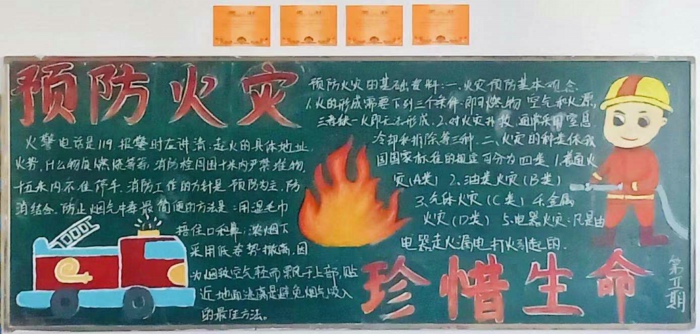 预防火灾
火警电话是119,报警时应讲清:起火的具体地址,
火势,什么物质燃烧等等,消防栓周围十米内严禁堆物,
十五米内不准停车,消防工作的方针是预防为主,防
消结合,防止烟气中毒最简便的方法是:用湿毛巾
捂住口和鼻,浓烟下
采用低姿势撤离,因
为烟较空气轻而飘于上部,贴
近地面逃离是避免烟气吸入
的最佳方法。
预防火灾的基础资料:一、火灾预防基本观念
1.火的形成需要下列三个条件,即可燃物 空气和火源,
三者缺一火即无不形成。2.对火灾扑救,通常采用窒息
冷却和排除等三种。二、火灾的种类依我
国国家标准的规定可分为四类 1.普通火
灾(A类) 2.油类火灾(B类)
3.气体火灾(C类) 4.金属
火灾(D类) 5.电器火灾:凡是由
电器走火漏电打火引起的.
珍惜生命
第五期